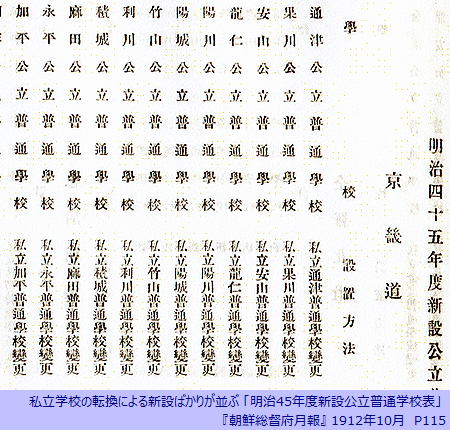 明治四十五年度新設公立
京畿道
學校 設置方法
通津公立普通學校 私立通津普通學校變更
果川公立普通學校 私立果川普通學校變更
安山公立普通學校 私立安山普通學校變更
龍仁公立普通學校 私立龍仁普通學校變更
陽川公立普通學校 私立陽川普通學校變更
陽城公立普通學校 私立陽城普通學校變更
竹山公立普通學校 私立竹山普通學校變更
利川公立普通學校 私立利川普通學校變更
積城公立普通學校 私立積城普通學校變更
麻田公立普通學校 私立麻田普通學校變更
永平公立普通學校 私立永平普通學校變更
加平公立普通學校 私立加平普通學校變更
私立学校の転換による新設ばかりが並ぶ「明治45年度新設公立普通学校表」
『朝鮮総督府月報』 1912年10月 P115